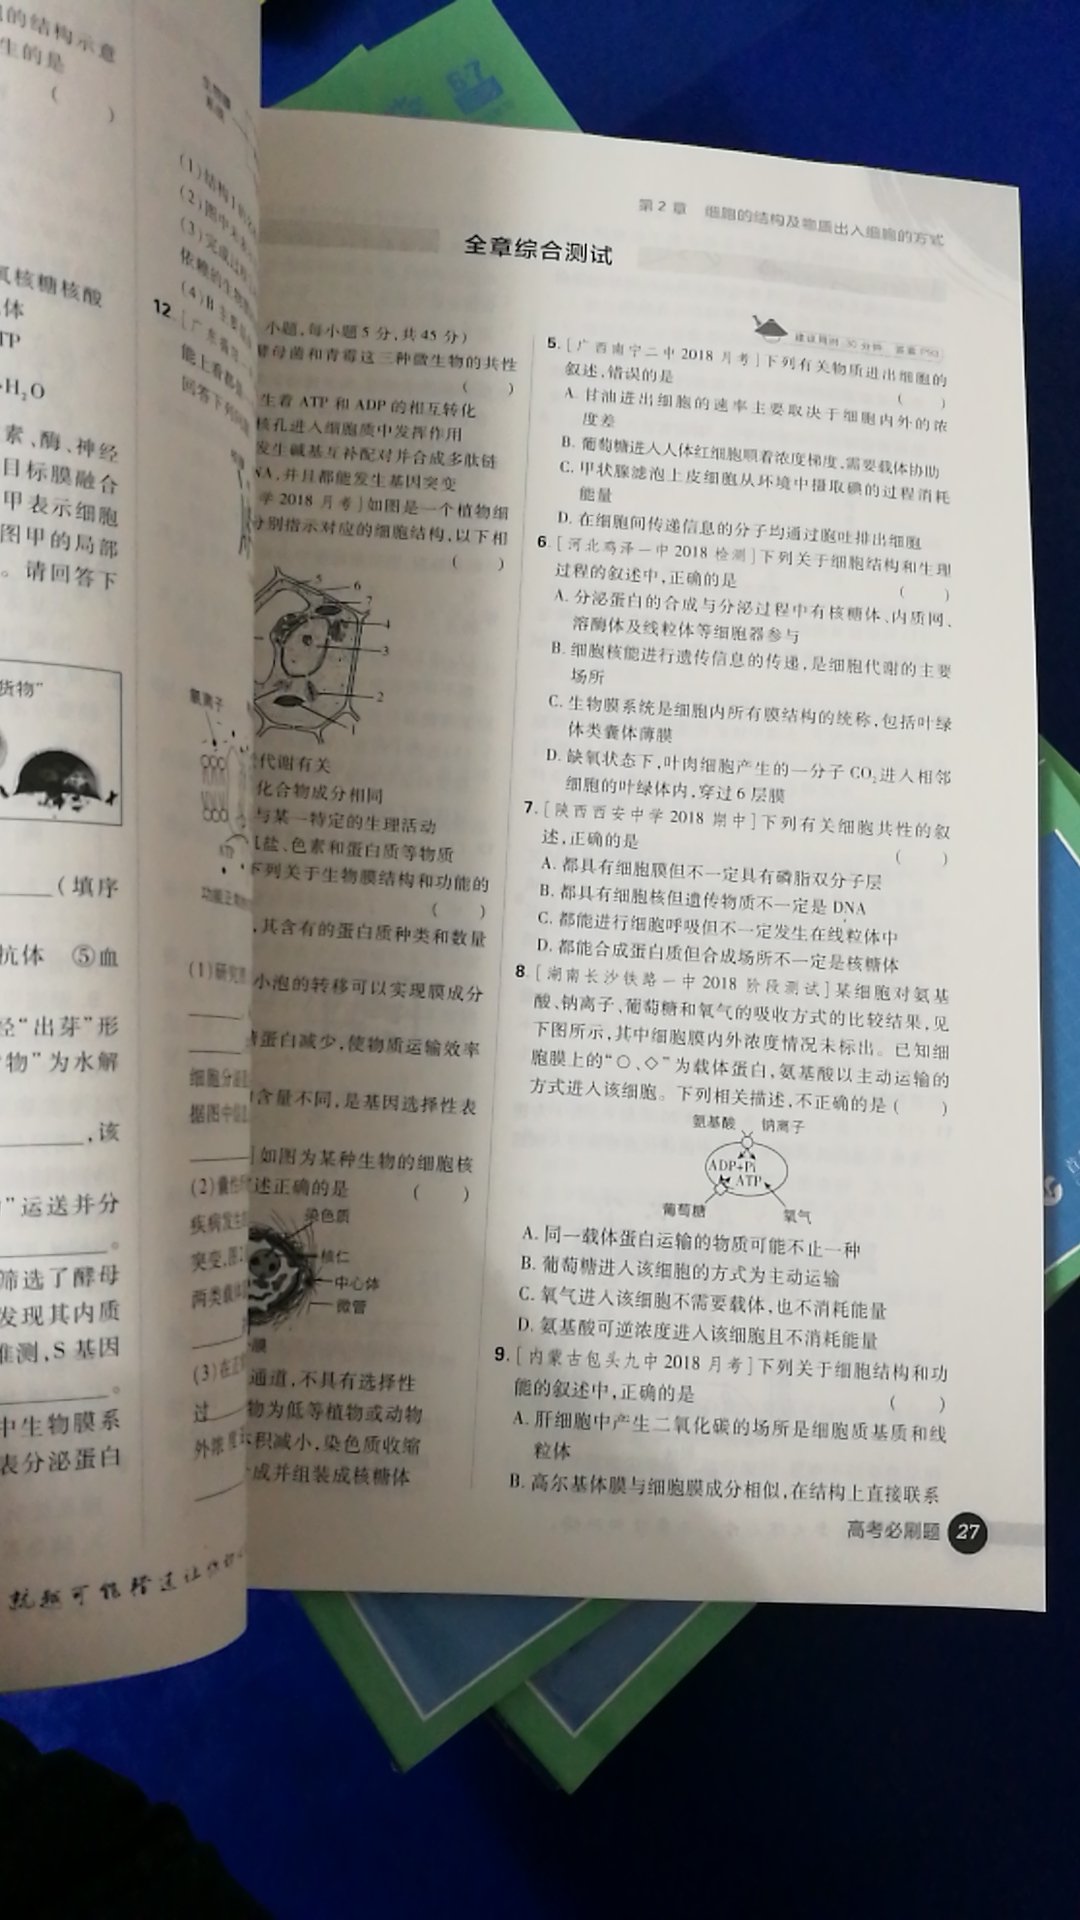 的结构示意
生的是
(  )
氧核糖核酸
体
TP
H₂O
素、酶、神经
目标膜融合
甲表示细胞
图甲的局部
。请回答下
货物”
(填序
抗体 ⑤血
经“出芽”形
物”为水解
,该
”运送并分
。
筛选了酵母
发现其内质
推测,S基因
。
中生物膜系
表分泌蛋白
(1)结构
(2)图中
(3)完成过程
依赖的生物
(4)B
12.[广东
能上看都
回答下列问题
氯离子
ATP
功能正常
(1)研究
细胞分泌
据图中信息
(2)囊性
疾病发生
突变,图2
两类载体
(3)在正
过
外浓度
67
第2章 细胞的结构及物质出入细胞的方式
全章综合测试
建议用时 30分钟 答案P50
小题,每小题5分,共45分)
酵母菌和青霉这三种微生物的共性
(  )
生着ATP和ADP的相互转化
核孔进入细胞质中发挥作用
发生碱基互补配对并合成多肽链
NA,并且都能发生基因突变
学2018月考]如图是一个植物细
分别指示对应的细胞结构,以下相
(  )
5
6
7
4
3
2
1
代谢有关
化合物成分相同
与某一特定的生理活动
盐、色素和蛋白质等物质
下列关于生物膜结构和功能的
(  )
,其含有的蛋白质种类和数量
小泡的转移可以实现膜成分
蛋白减少,使物质运输效率
含量不同,是基因选择性表
]如图为某种生物的细胞核
述正确的是 (  )
染色质
核仁
中心体
微管
膜
通道,不具有选择性
物为低等植物或动物
积减小,染色质收缩
成并组装成核糖体
5.[广西南宁二中2018月考]下列有关物质进出细胞的
叙述,错误的是 (  )
A.甘油进出细胞的速率主要取决于细胞内外的浓
度差
B.葡萄糖进入人体红细胞顺着浓度梯度,需要载体协助
C.甲状腺滤泡上皮细胞从环境中摄取碘的过程消耗
能量
D.在细胞间传递信息的分子均通过胞吐排出细胞
6.[河北鸡泽一中2018检测]下列关于细胞结构和生理
过程的叙述中,正确的是 (  )
A.分泌蛋白的合成与分泌过程中有核糖体、内质网、
溶酶体及线粒体等细胞器参与
B.细胞核能进行遗传信息的传递,是细胞代谢的主要
场所
C.生物膜系统是细胞内所有膜结构的统称,包括叶绿
体类囊体薄膜
D.缺氧状态下,叶肉细胞产生的一分子CO₂进入相邻
细胞的叶绿体内,穿过6层膜
7.[陕西西安中学2018期中]下列有关细胞共性的叙
述,正确的是 (  )
A.都具有细胞膜但不一定具有磷脂双分子层
B.都具有细胞核但遗传物质不一定是DNA
C.都能进行细胞呼吸但不一定发生在线粒体中
D.都能合成蛋白质但合成场所不一定是核糖体
8.[湖南长沙铁路一中2018阶段测试]某细胞对氨基
酸、钠离子、葡萄糖和氧气的吸收方式的比较结果,见
下图所示,其中细胞膜内外浓度情况未标出。已知细
胞膜上的“○、◇”为载体蛋白,氨基酸以主动运输的
方式进入该细胞。下列相关描述,不正确的是(  )
氨基酸 钠离子
ADP+Pi
ATP
葡萄糖 氧气
A.同一载体蛋白运输的物质可能不止一种
B.葡萄糖进入该细胞的方式为主动运输
C.氧气进入该细胞不需要载体,也不消耗能量
D.氨基酸可逆浓度进入该细胞且不消耗能量
9.[内蒙古包头九中2018月考]下列关于细胞结构和功
能的叙述中,正确的是 (  )
A.肝细胞中产生二氧化碳的场所是细胞质基质和线
粒体
B.高尔基体膜与细胞膜成分相似,在结构上直接联系
高考必刷题 27
就越可能